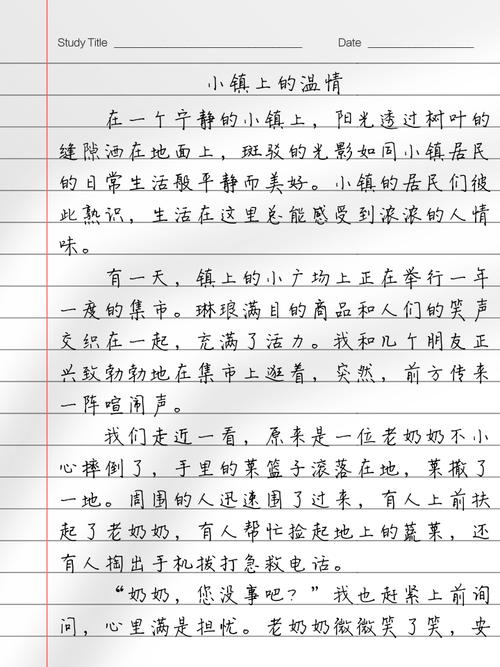 Study Title
Date
小镇上的温情
在一个宁静的小镇上，阳光透过树叶的
缝隙洒在地面上，斑驳的光影如同小镇居民
的日常生活般平静而美好。小镇的居民们彼
此熟识，生活在这里总能感受到浓浓的人情
味。
有一天，镇上的小广场上正在举行一年
一度的集市。琳琅满目的商品和人们的笑声
交织在一起，充满了活力。我和几个朋友正
兴致勃勃地在集市上逛着，突然，前方传来
一阵喧闹声。
我们走近一看，原来是一位老奶奶不小
心摔倒了，手里的菜篮子滚落在地，菜撒了
一地。周围的人迅速围了过来，有人上前扶
起了老奶奶，有人帮忙捡起地上的蔬菜，还
有人掏出手机拨打急救电话。
“奶奶，您没事吧？”我也赶紧上前询
问，心里满是担忧。老奶奶微微笑了笑，安